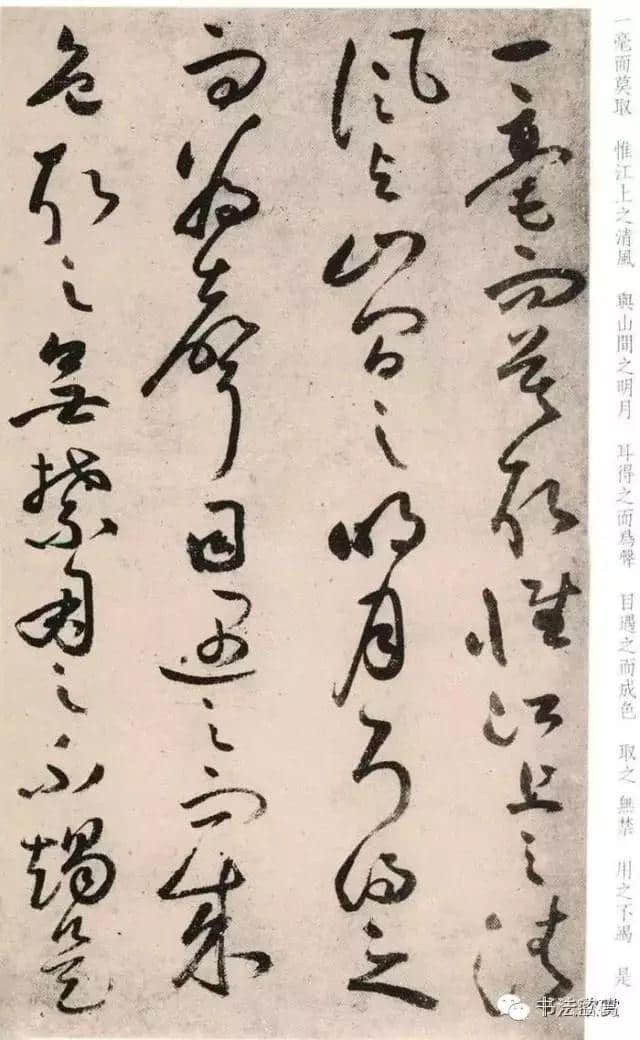 一毫而莫取 惟江上之清風 與山間之明月 耳得之而為聲 目遇之而成色 取之 無禁 用之不竭 是
一毫而莫取惟江上之清
風與山間之明月耳得之
而為聲目遇之而成
色取之無禁用之不竭是
书法欣赏